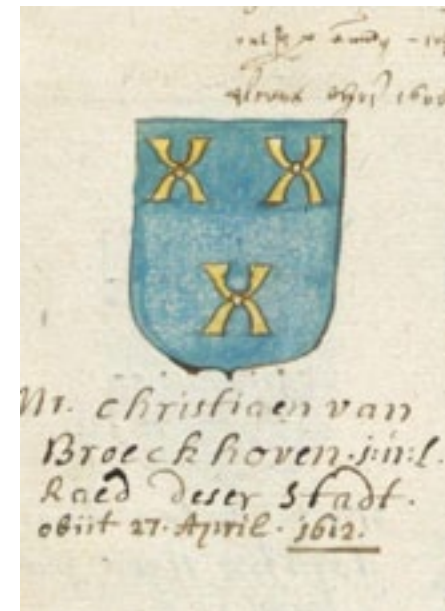 Mr. Christiaen van
Broeckhoven. j:v:l.
Raed deser Stadt.
obiit 27. April. 1612.